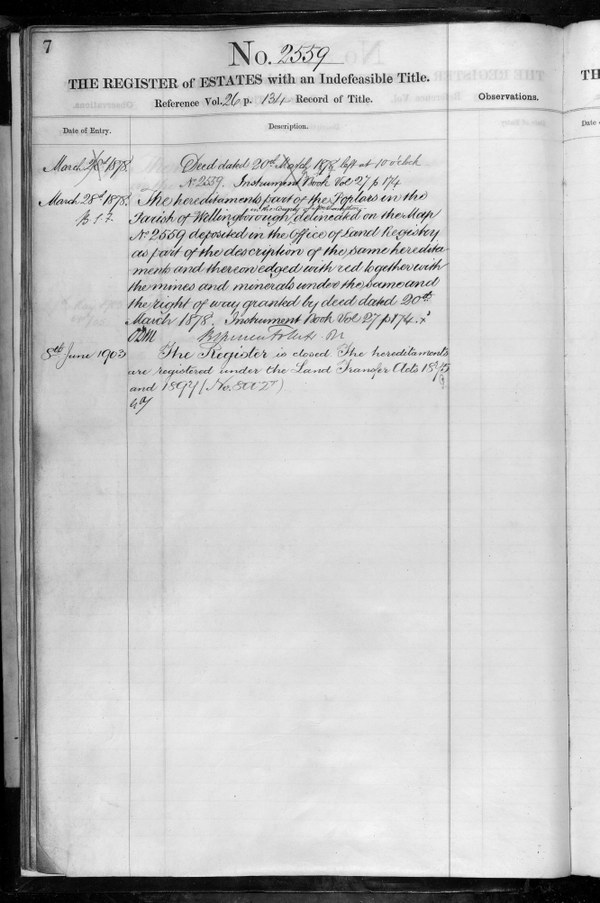 7
No. 2559
THE REGISTER of ESTATES with an Indefeasible Title.
Reference Vol. 26 p. 134 Record of Title.
Observations.
Date of Entry.
Description.
March 28th 1878
Deed dated 20th March 1878 left at 10 o'clock
No 2559. Instrument Book Vol 27 p 174
March 28th 1878.
The hereditaments part of the Poplars in the
in the County of Northampton
Parish of Wellingborough delineated on the Map
No 2559 deposited in the Office of Land Registry
as part of the description of the same heredita
ments and thereon edged with red together with
the mines and minerals under the same and
the right of way granted by deed dated 20th
March 1878. Instrument Book Vol 27 p 174.
8th June 1903
The Register is closed. The hereditaments
are registered under the Land Transfer Acts 1875
and 1897 (No.
TH
Date